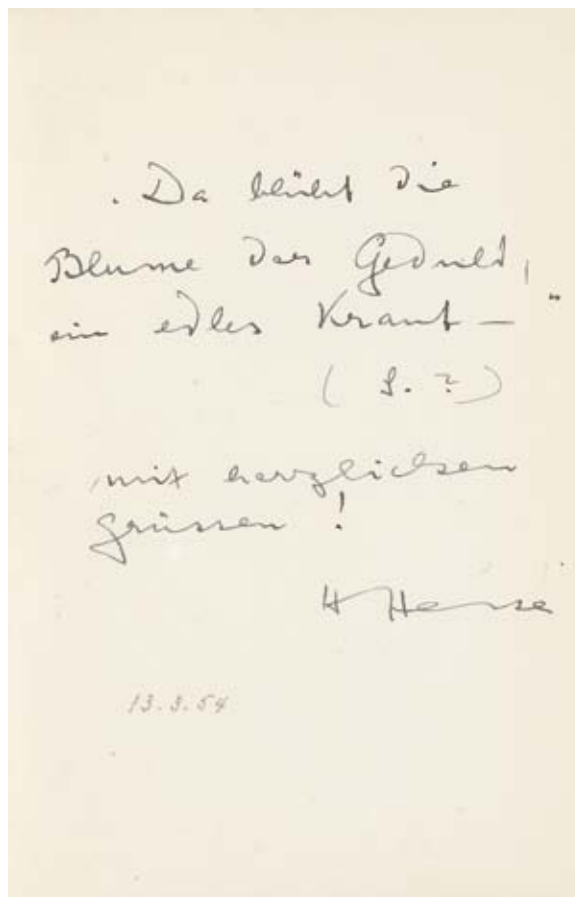 „Da blüht die
Blume der Geduld,
ein edles Kraut – "
(S. ?)
mit herzlichen
Grüssen!
H Hesse
13.3.54